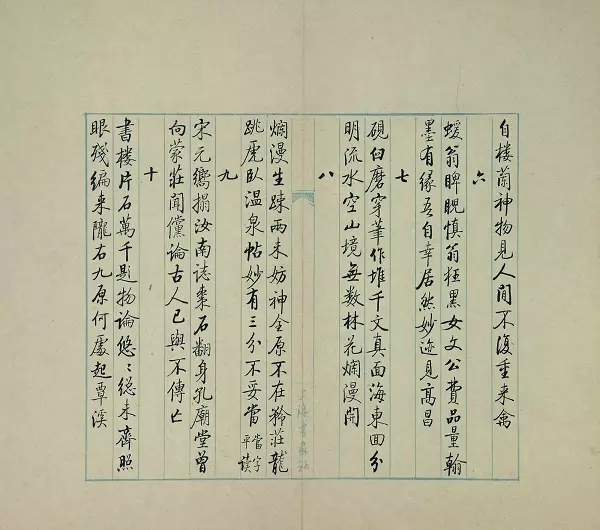 自楼蘭神物見人間不復重来禽
六
蝯翁睥睨慎翁狂黑女文公費品量翰
墨有缘吾自幸居然妙迹見高昌
七
硯臼磨穿筆作堆千文真面海東回分
明流水空山境無数林花爛漫開
八
爛漫生疎两未妨神全原不在矜莊龍
跳虎卧温泉帖妙有三分不妥當
當字
平读
九
宋元嚮搨汝南誌棗石翻身孔廟堂曾
向蒙莊聞儻論古人已與不傳亡
十
書楼片石萬千题物論悠〻総未齊照
眼殘编来隴右九原何處起覃溪